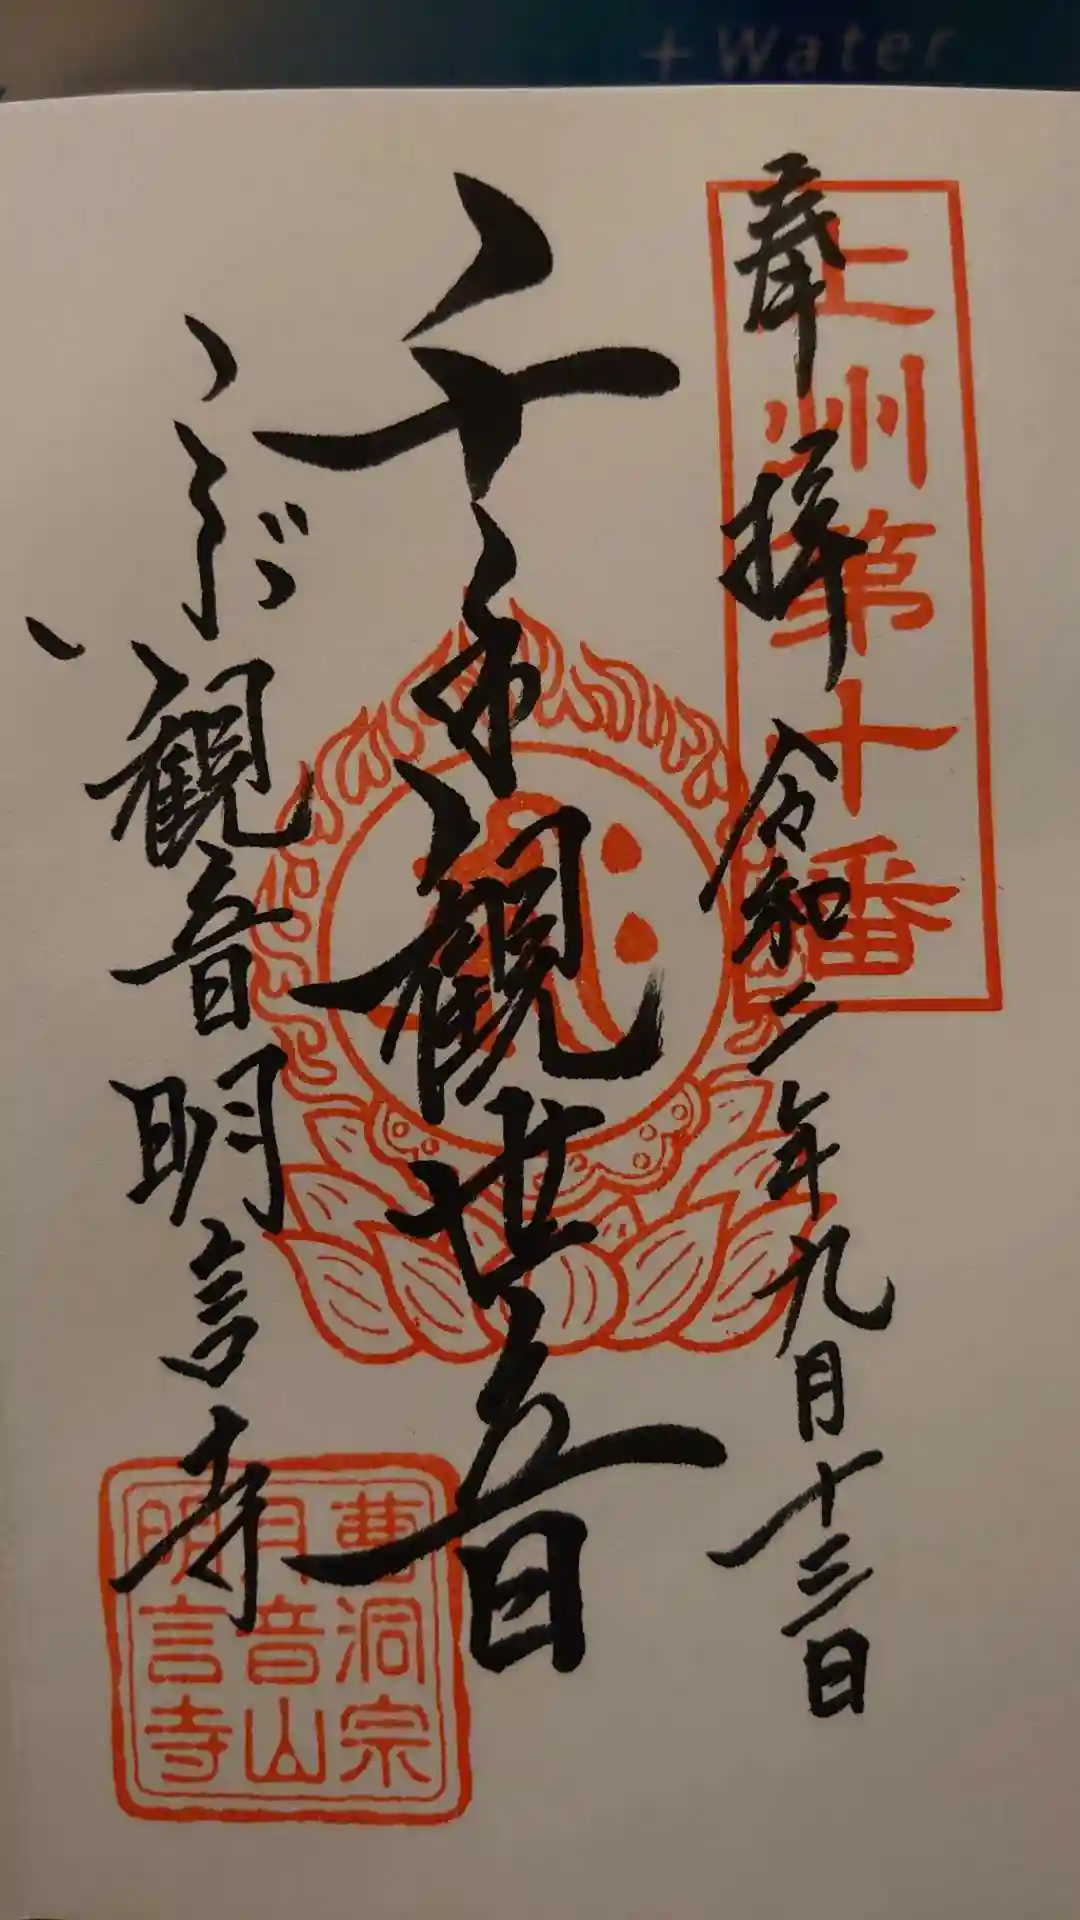 + Water
上州第十番
奉拝 令和二年九月十三日
千手観世音
こぶ観音 明言寺
曹洞宗
月音山
明言寺